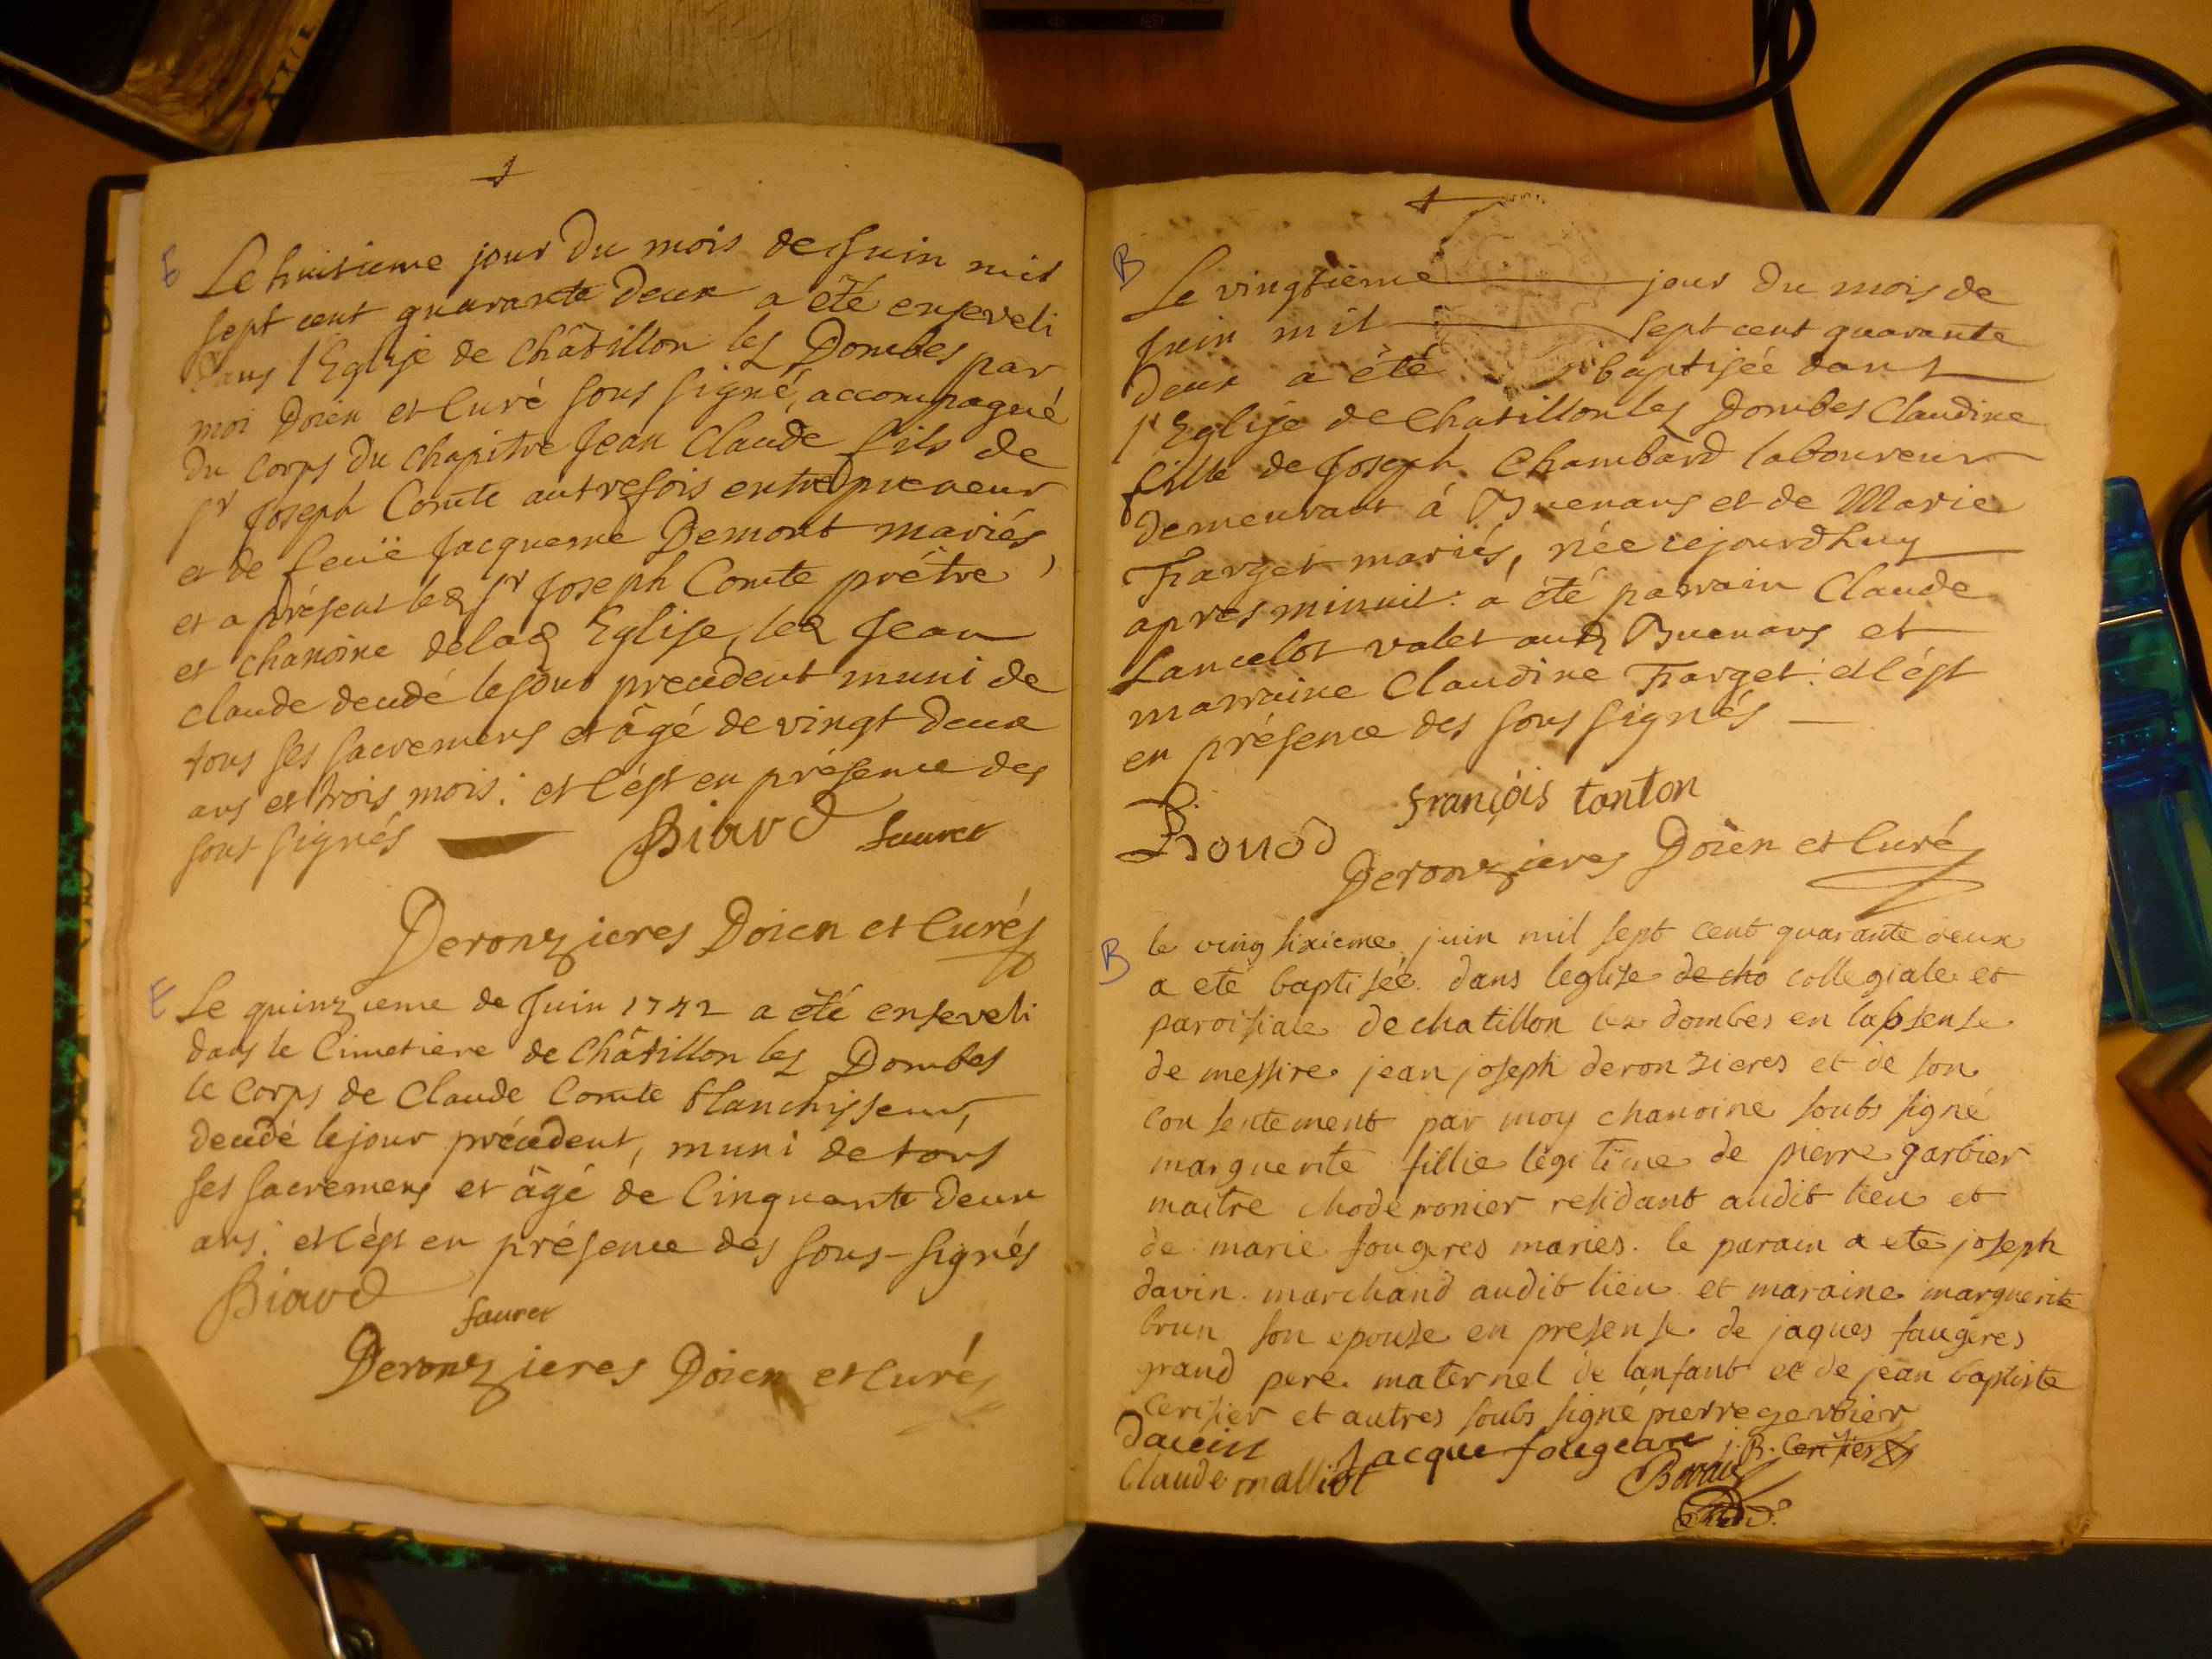 E
Le huitieme jour du mois de Juin mil
sept cent quarante deux a été enseveli
dans l'Eglise de Châtillon les Dombes par
moi Doïen et Curé sous signé, accompagné
du corps du chapitre Jean Claude fils de
Sr Joseph Comte autrefois entrepreneur
et de feuë Jacqueme Demont mariés,
et a présent led Sr Joseph Comte prêtre
et chanoine delad Eglise, led Jean
claude decedé le jour precedent muni de
tous ses sacremens et âgé de vingt deux
ans et trois mois: et c'ést en présence des
sous signés
Biard sauret
Deronzieres Doïen et Curé
E
Le quinzieme de Juin 1742 a été enseveli
dans le Cimetiere de Châtillon les Dombes
le Corps de Claude Comte blanchisseur,
decedé le jour précedent, muni de tous
ses sacremens et âgé de Cinquante deux
ans: et c'ést en présence des sous-signés
Biard
sauret
Deronzieres Doïen et Curé
B
Le vingtieme jour du mois de
Juin mil sept cent quarante
deux a été baptisée dans
l'Eglise de Chatillon les Dombes Claudine
fille de Joseph Chambard laboureur
demeurant á Buenans et de Marie
Farget mariés, née cejourdhuy
apres minuit: a été parrain Claude
Lancelot valet aud Buenans et
marraine Claudine Farget: et c'ést
en présence des sous signés
françois tonton
Bouod
Deronzieres Doïen et Curé
B
le ving sixieme juin mil sept cent quarante deux
a eté baptisée dans leglise de cha collegiale et
paroisiale de chatillon les dombes en lapsense
de messire jean joseph deronzieres et de son
consentement par moy chanoine soubs signé
marguerite fillie légitime de pierre garbier
maitre choderonier residant audit lieu et
de marie fougeres maries. le parain a ete joseph
davin marchand audit lieu et maraine marguerite
brun son epouse en presense de jaques faugeres
grand pere maternel de lanfant et de jean baptiste
Cerisier et autres soubs signe pierre gerbier
Dauin Jacque fougeare J. B. Cerisier
Claude malliot